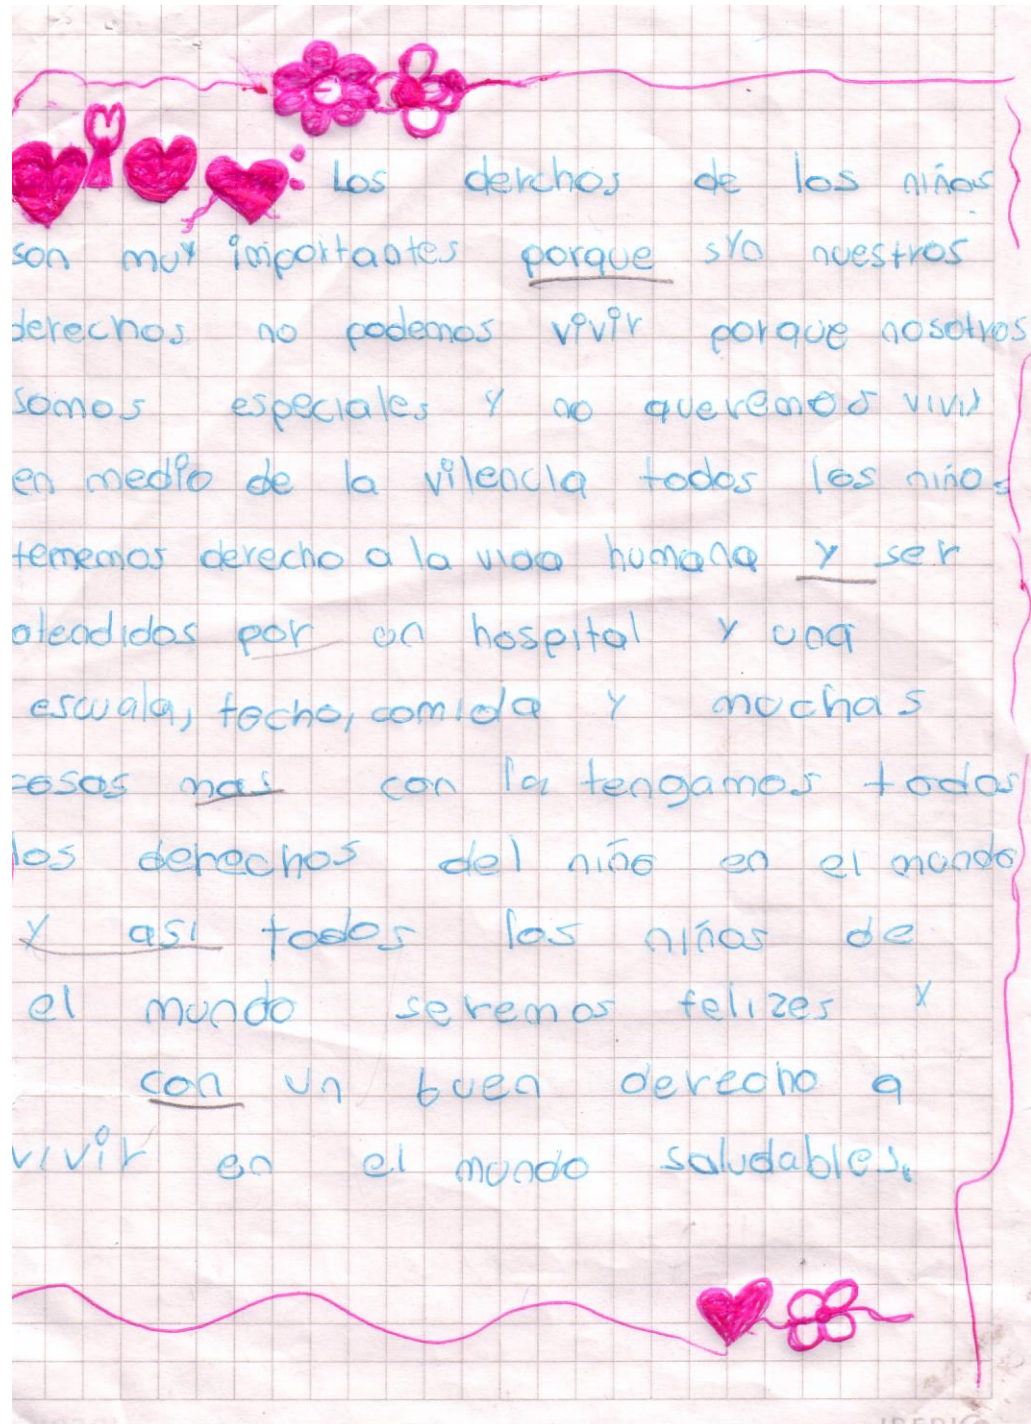 Los derchos de los niños
son muy importantes porque sin nuestros
derechos no podemos vivir porque nosotros
somos especiales y no queremos vivir
en medio de la vilencia todos los niños
tememos derecho a la vida humana y ser
atendidos por un hospital y una
escuala, techo, comida y muchas
cosas mas con la tengamos todos
los derechos del niño en el mundo
y asi todos los niños de
el mundo seremos felizes y
con un buen derecho a
vivir en el mundo saludables.